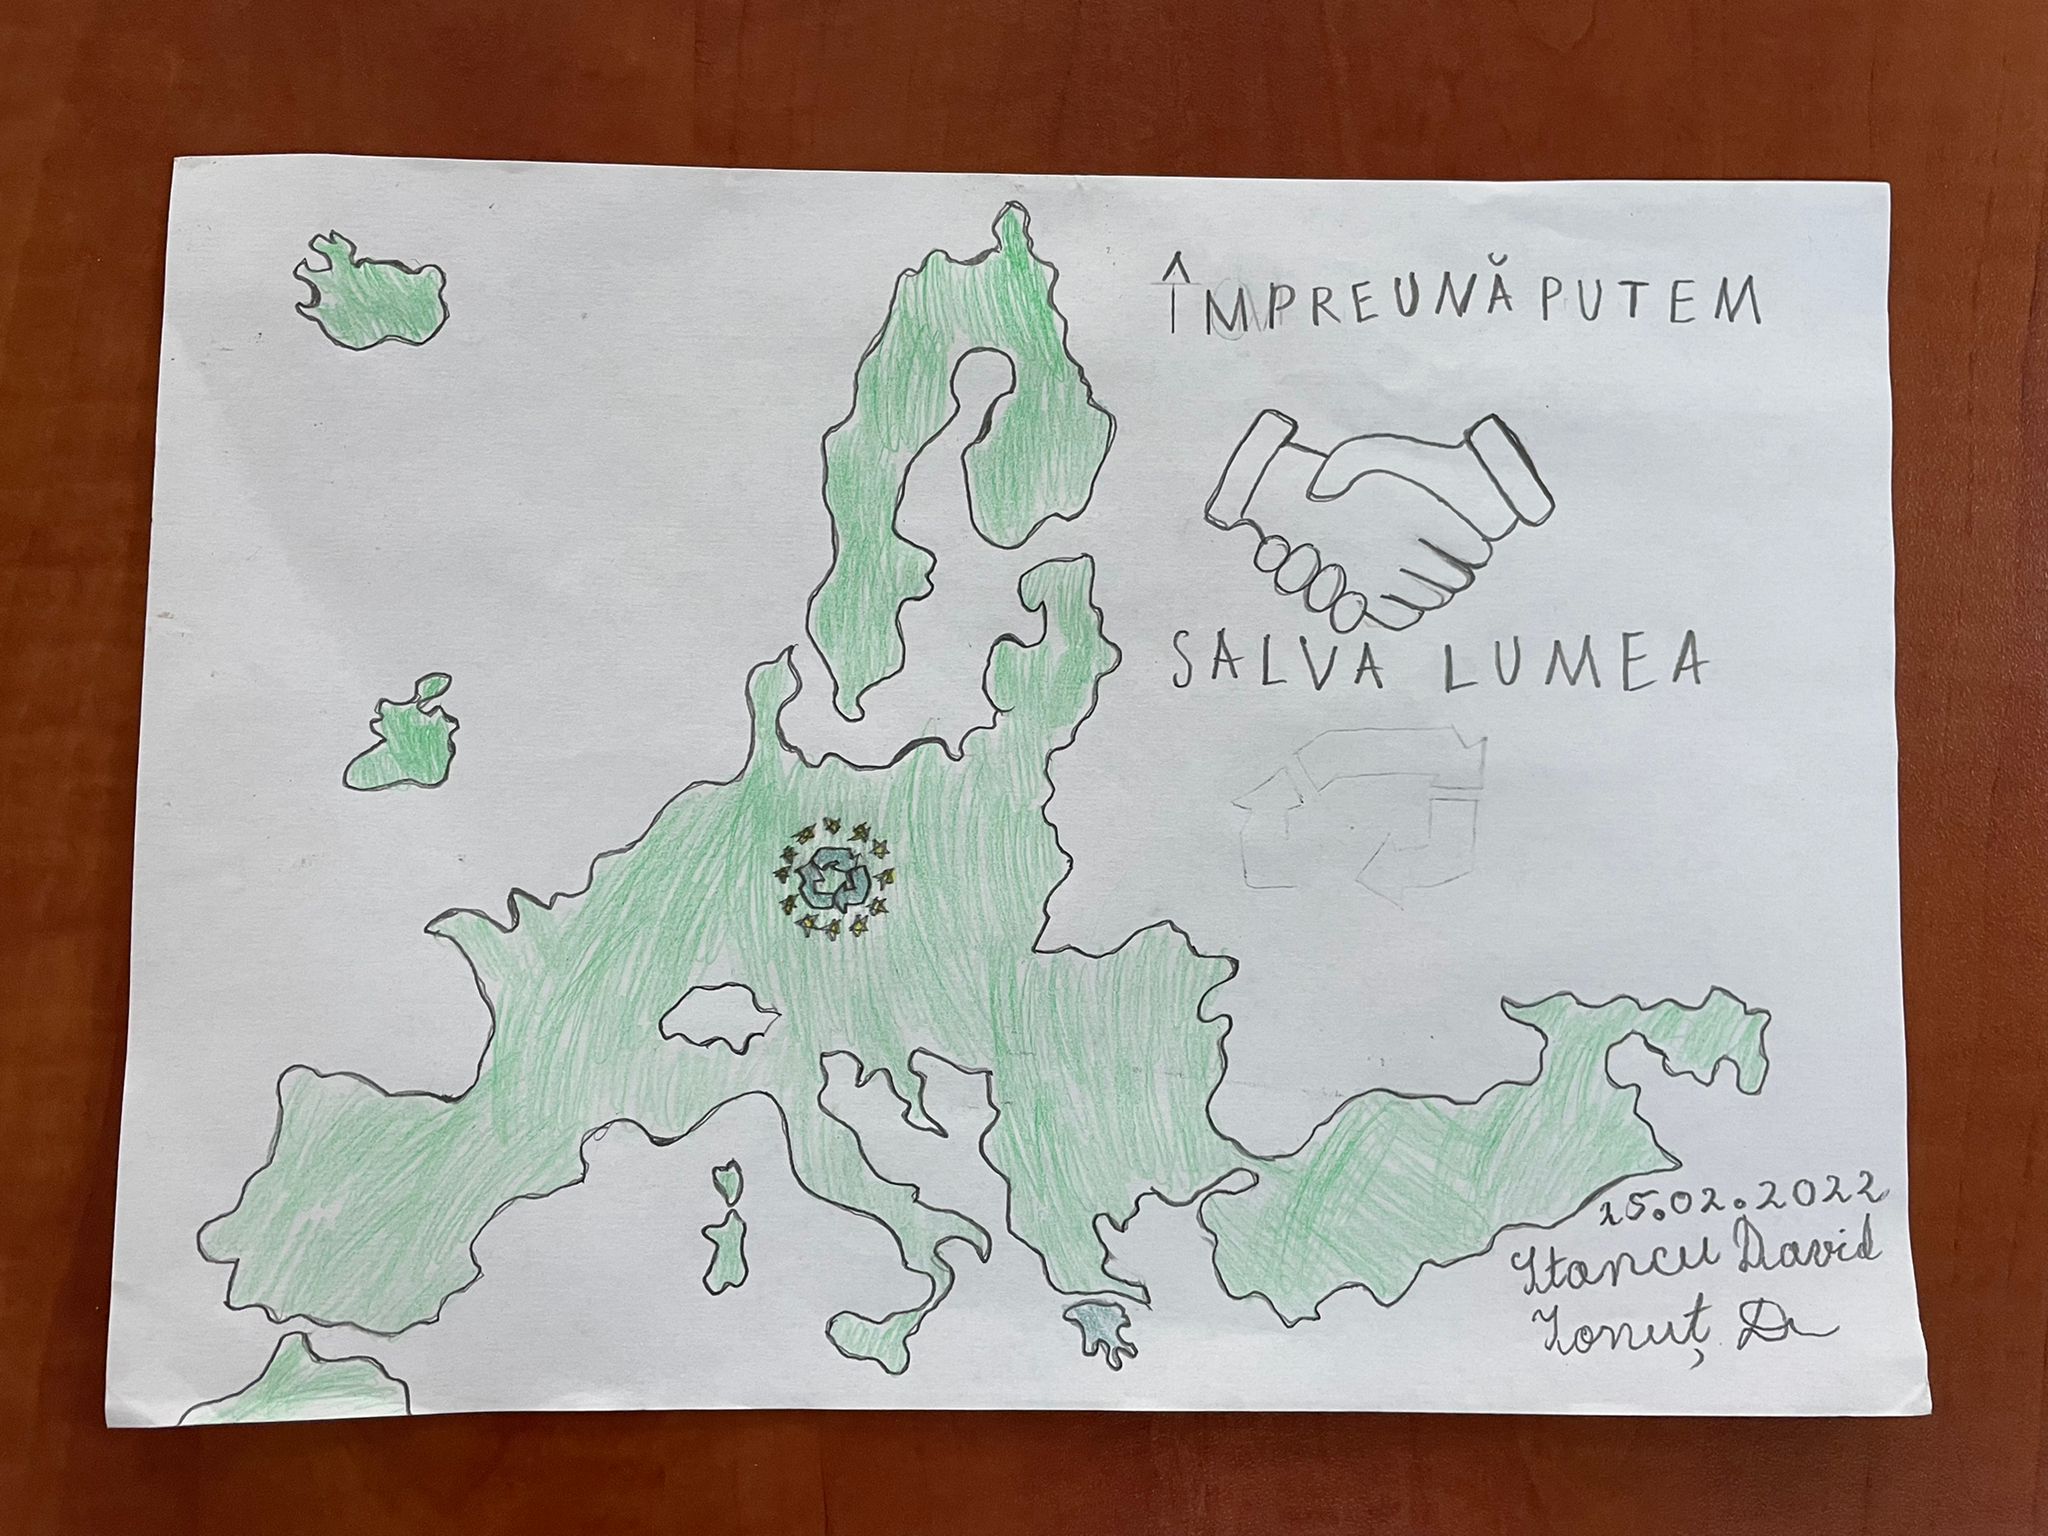 ÎMPREUNĂ PUTEM
SALVA LUMEA
15.02.2022
Stancu David
Ionuț,